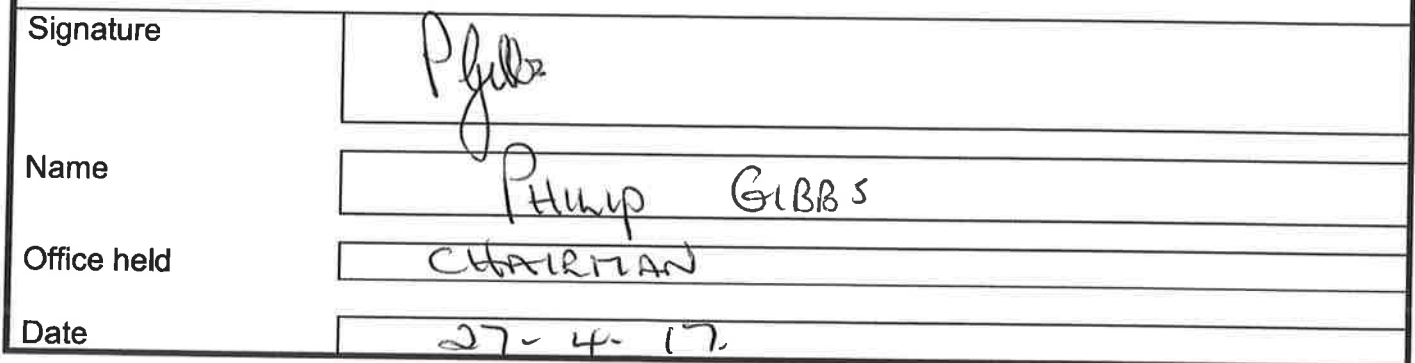 Signature PGibbs
Name PHILIP GIBBS
Office held CHAIRMAN
Date 27-4-17.